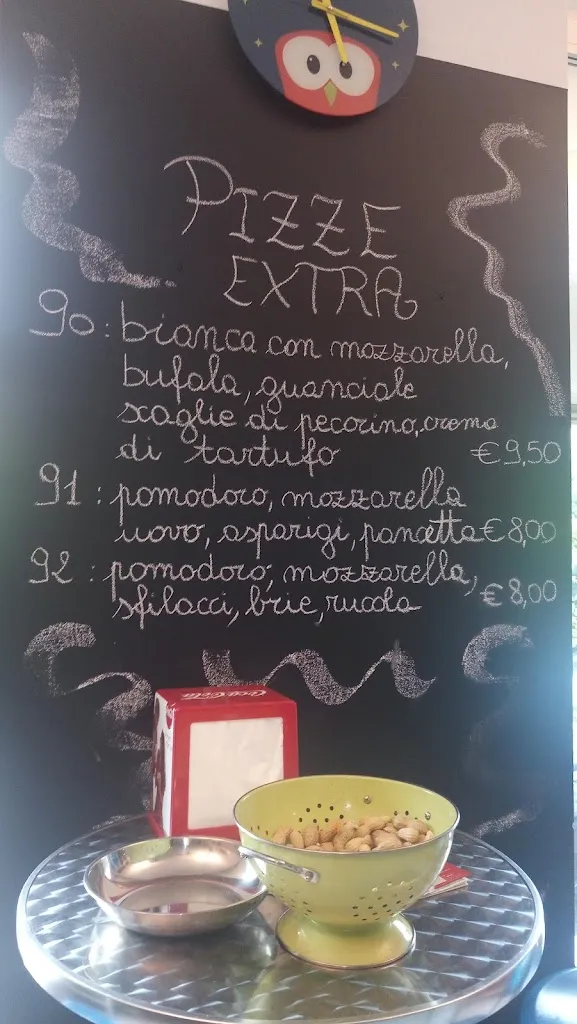 PIZZE
EXTRA
90: bianca con mozzarella,
bufala, guanciale
scaglie di pecorino, crema
di tartufo €9,50
91: pomodoro, mozzarella
uovo, asparigi, pancetta €8,00
92: pomodoro, mozzarella,
sfilacci, brie, rucola €8,00
Coca-Cola